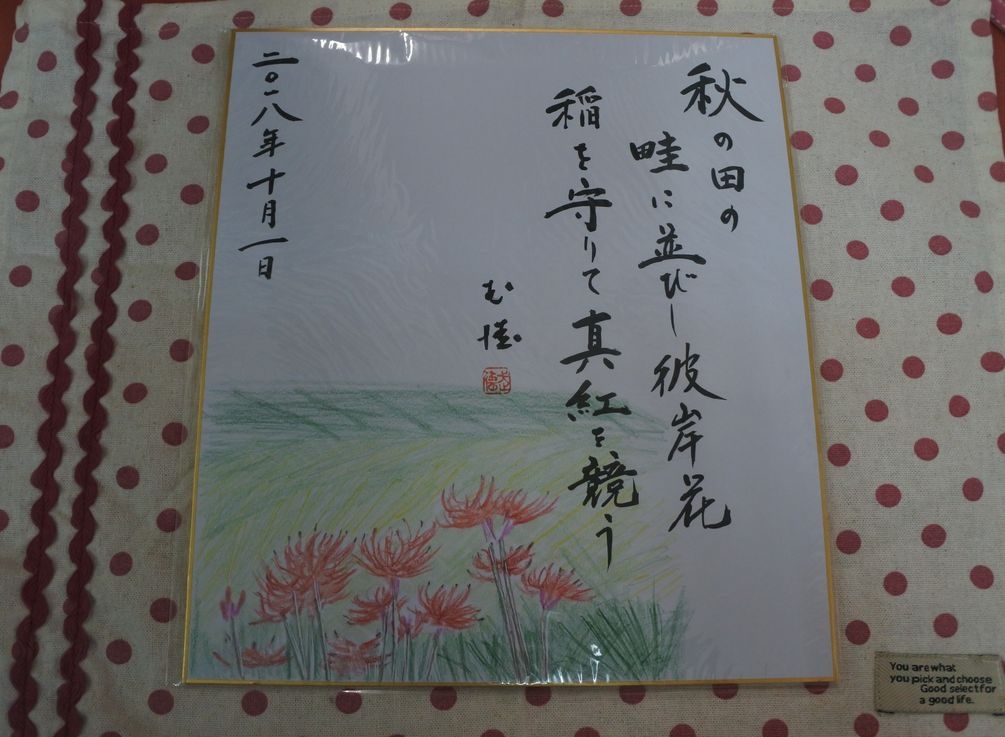 秋の田の
畦に並びし彼岸花
稲を守りて真紅を競う
二〇一八年十月一日
You are what
you pick and choose
Good select for
a good life.